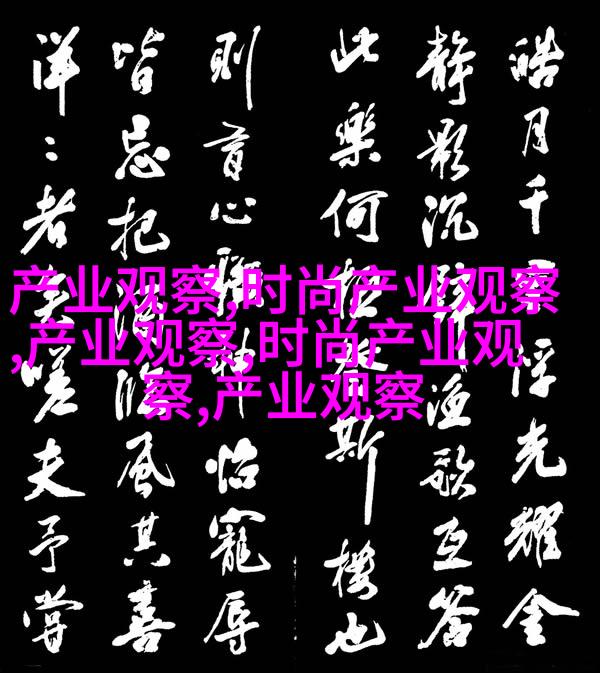 皓月千浮光耀金
静影沉渔歌互答
此樂何極斯樓也
則有心曠神怡寵辱
皆忘把酒临風其喜
洋：者矣嗟夫予嘗
产业观察,时尚产业观察
,产业观察,时尚产业观
察,产业观察